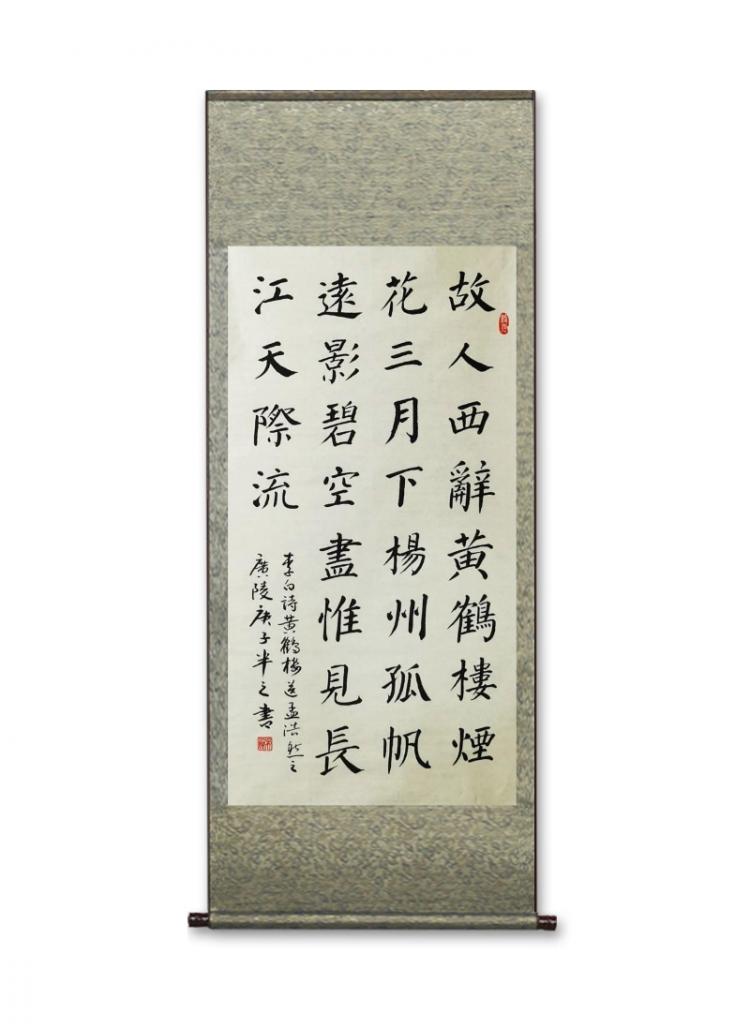 故人西辭黃鶴樓煙
花三月下楊州孤帆
遠影碧空盡惟見長
江天際流
李白诗黄鶴楼送孟浩然之
廣陵庚子半之書